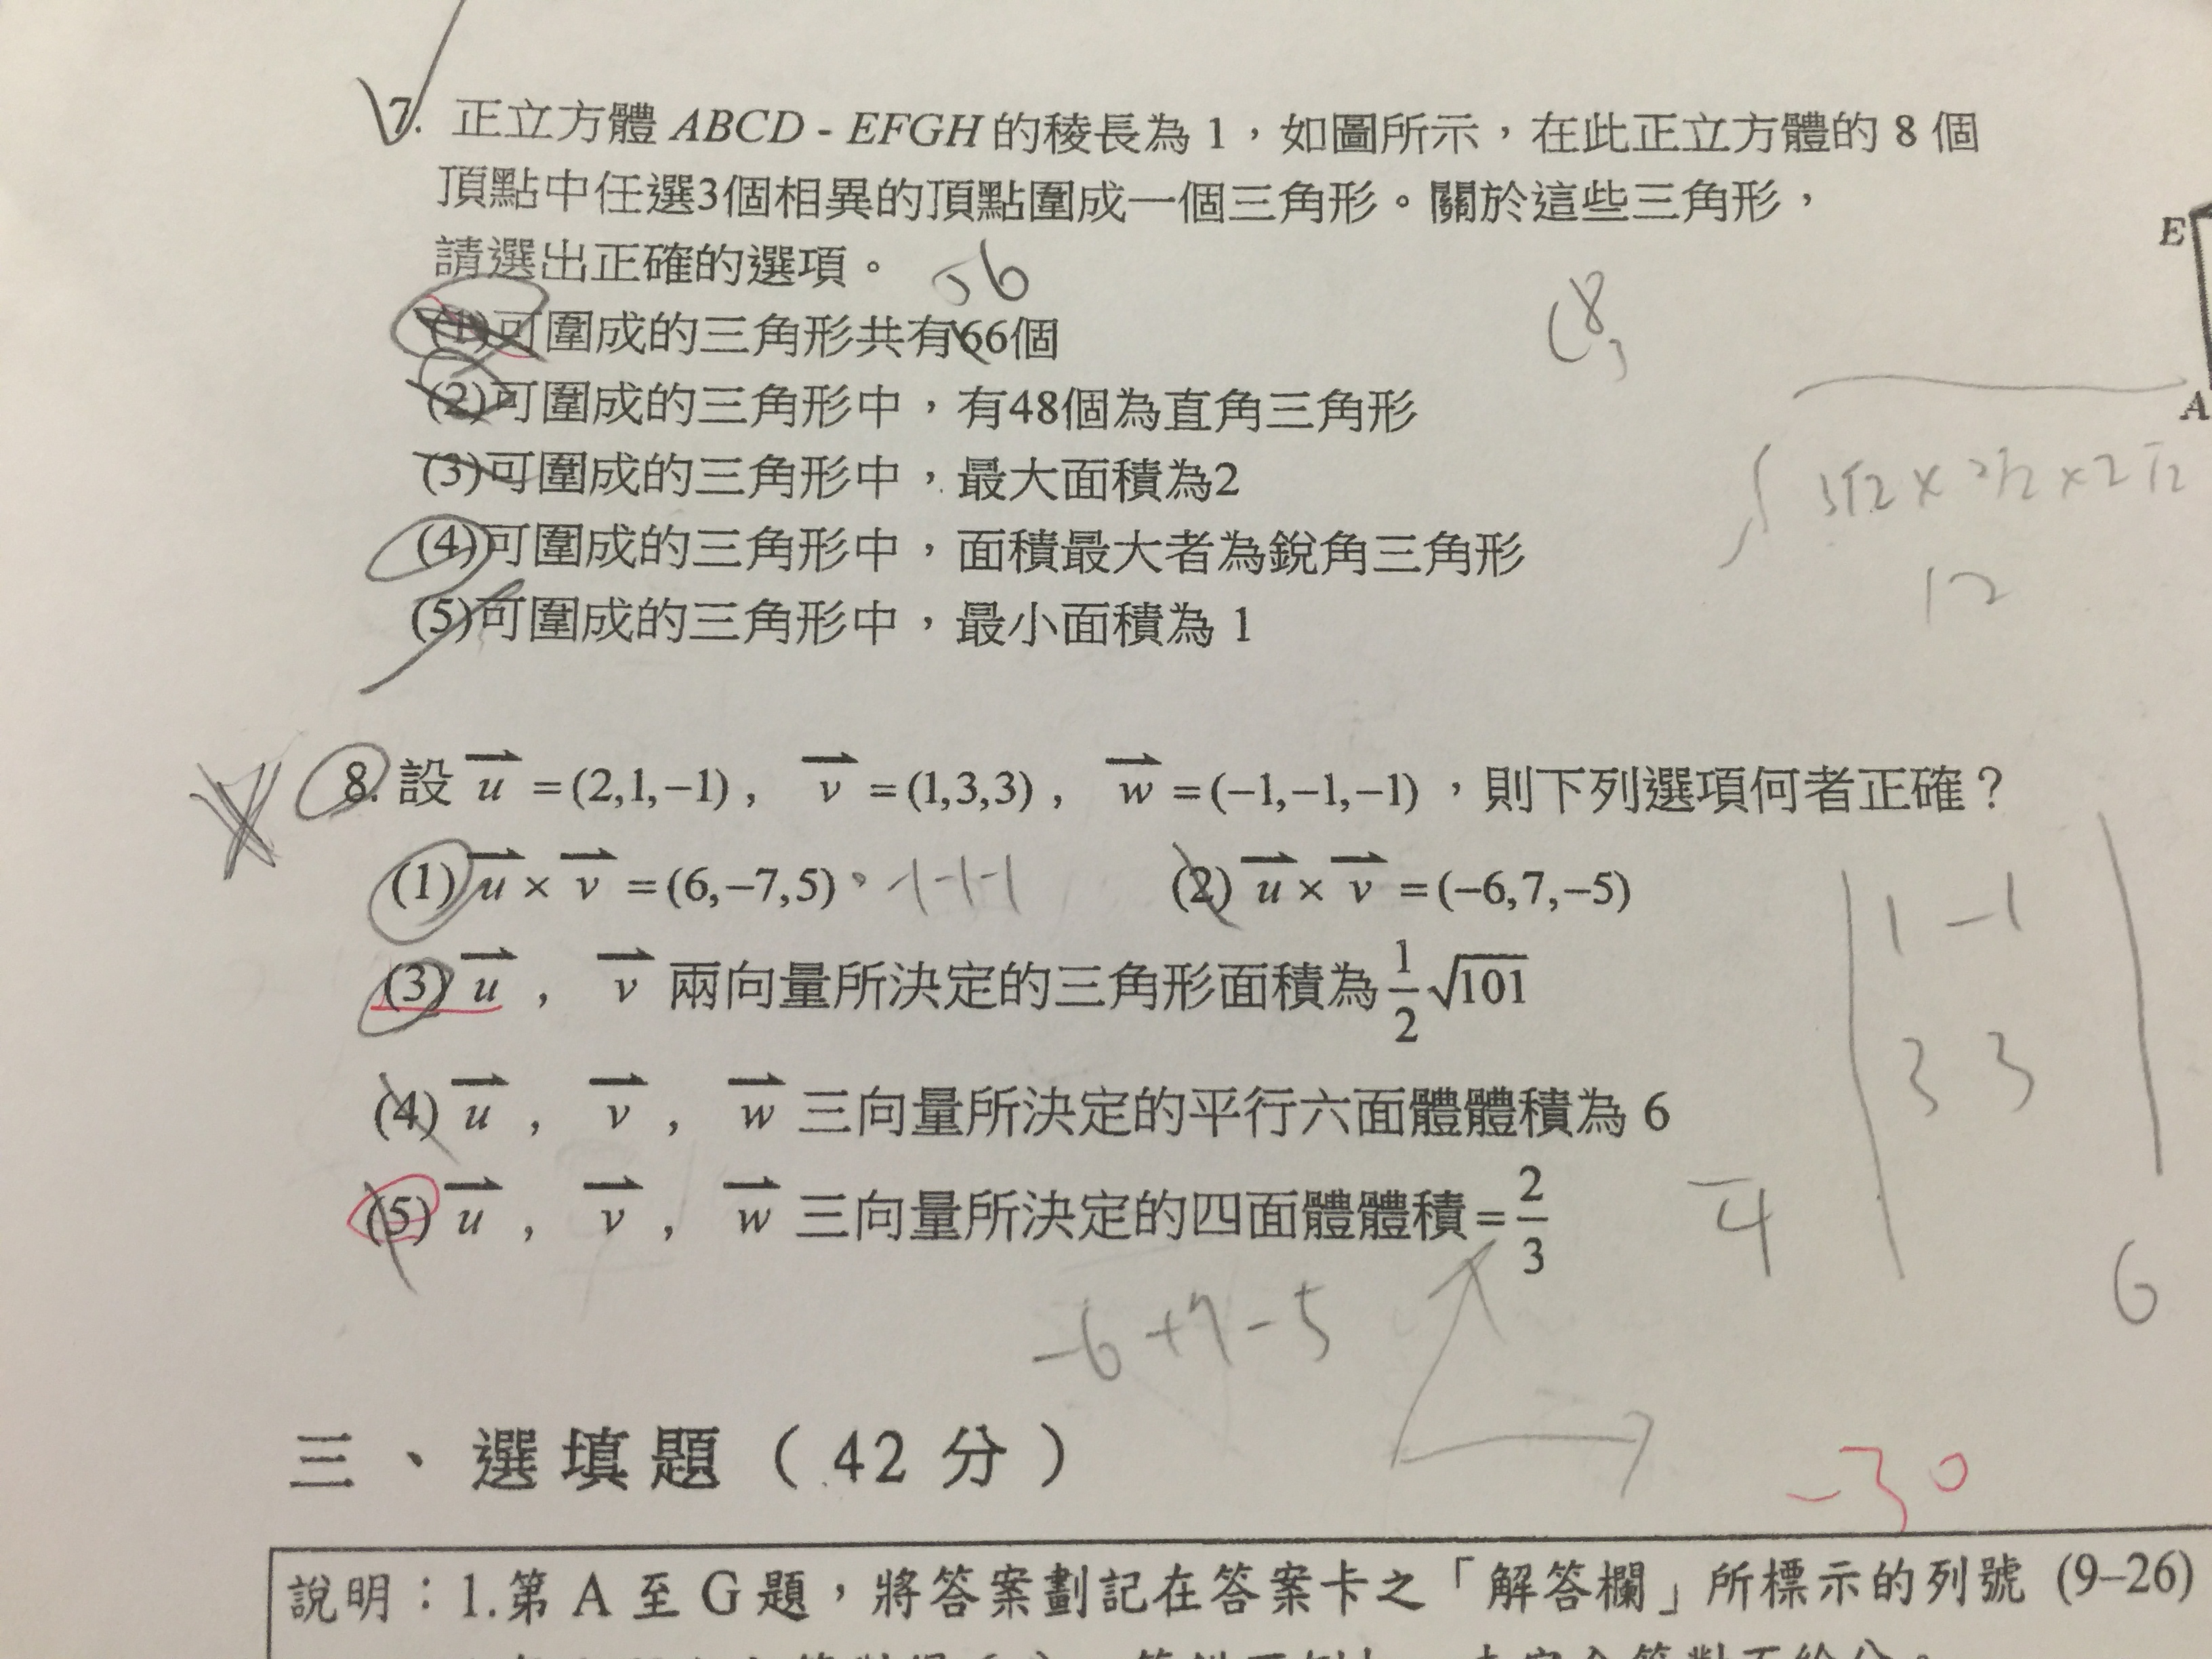 7. 正立方體 ABCD - EFGH 的稜長為 1，如圖所示，在此正立方體的 8 個
頂點中任選3個相異的頂點圍成一個三角形。關於這些三角形，
請選出正確的選項。
56
(1)可圍成的三角形共有66個
C83
(2)可圍成的三角形中，有48個為直角三角形
(3)可圍成的三角形中，最大面積為2
(4)可圍成的三角形中，面積最大者為銳角三角形
(5)可圍成的三角形中，最小面積為 1
E
A
12
8. 設 u =(2,1,−1)， v =(1,3,3)， w =(−1,−1,−1)，則下列選項何者正確？
(1) u × v =(6,−7,5) -1-1-1 (2) u × v =(−6,7,−5)
1 -1
3 3
(3) u ， v 兩向量所決定的三角形面積為 1/2 √101
(4) u ， v ， w 三向量所決定的平行六面體體積為 6
(5) u ， v ， w 三向量所決定的四面體體積 = 2/3
-4
6
-6+7-5
-30
三、選填題（42 分）
說明：1.第 A 至 G 題，將答案劃記在答案卡之「解答欄」所標示的列號 (9–26)